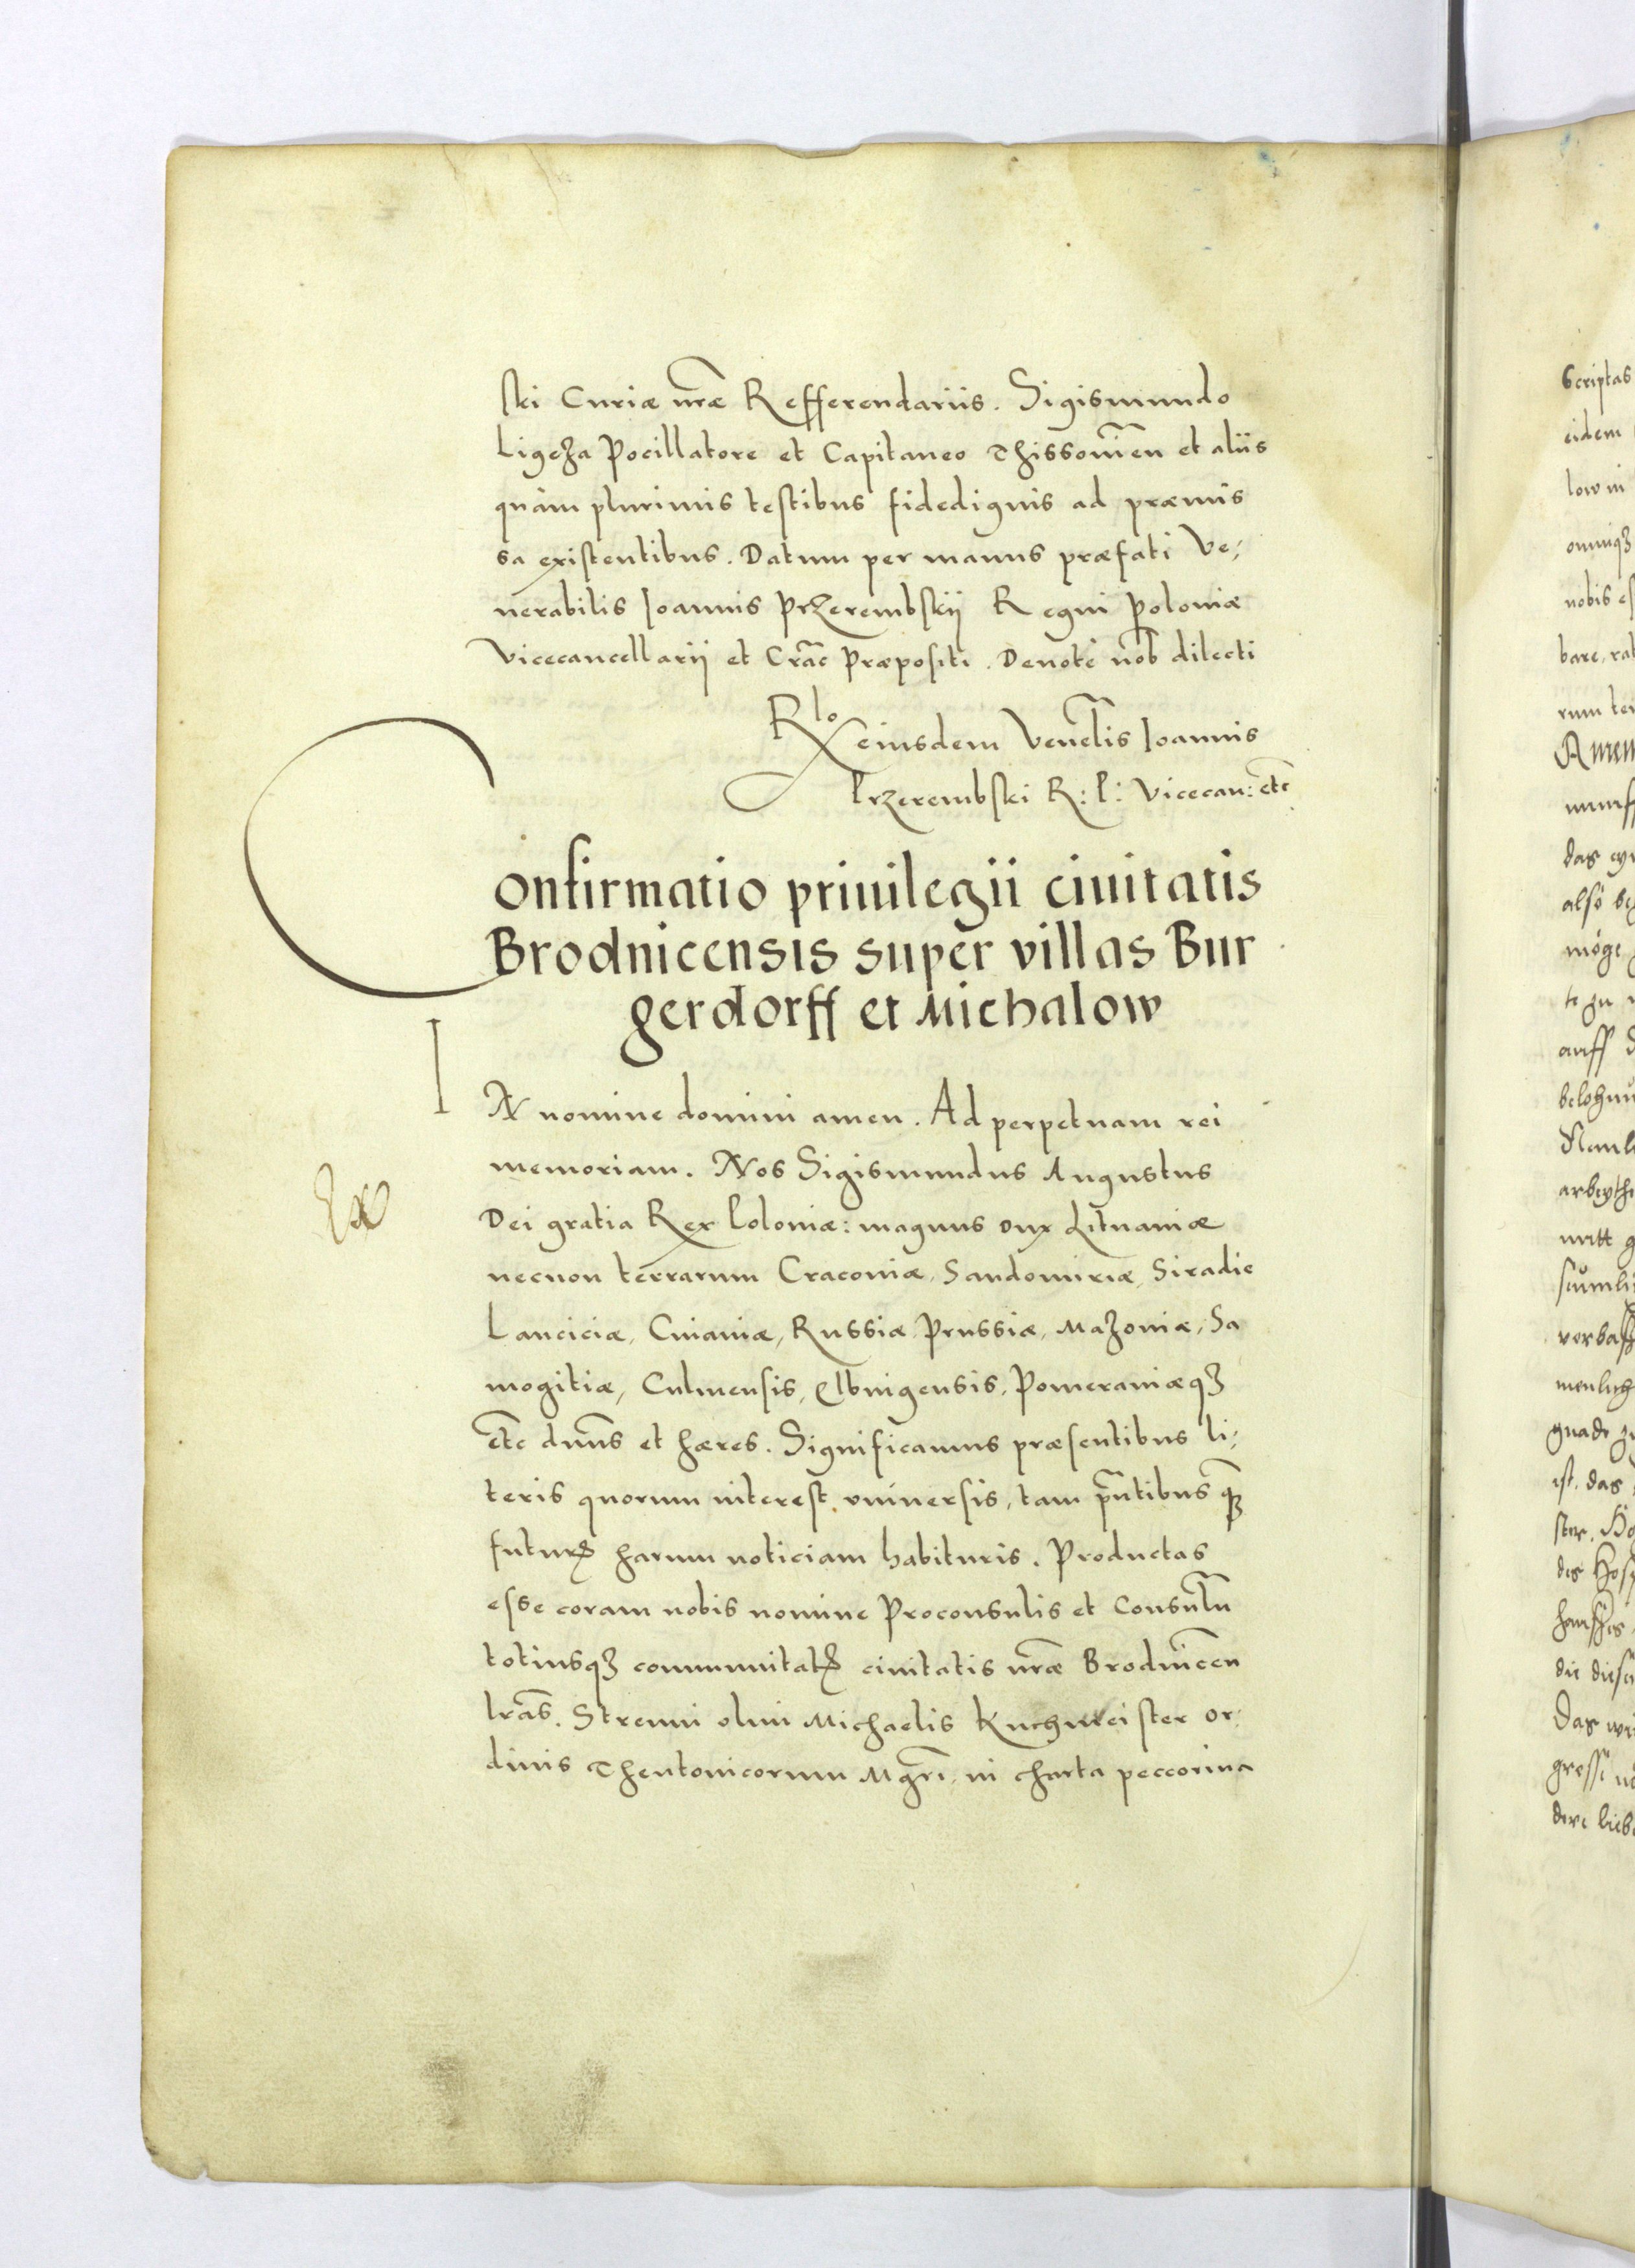 ski Curiæ nr̃æ Refferendariis. Sigismundo
Ligęza Pocillatore et Capitaneo Thissovien̄ et aliis
quàm plurimis testibus fidedignis ad præmis
sa existentibus. Datum per manus præfati Ve-
nerabilis Ioannis Przerembskij Regni Poloniæ
Vicecancellarij et Crac̄ Præpositi. Deuote nob̄ dilecti
Rlo eiusdem Venel̃is Ioannis
Przerembski R: P: Vicecan: etc̄
Confirmatio priuilegii ciuitatis
Brodnicensis super villas Bur
gerdorff et Michalow
IN nomine domini amen. Ad perpetuam rei
memoriam. Nos Sigismundus Augustus
Dei gratia Rex Poloniæ: magnus dux Lituaniæ
necnon terrarum Cracouiæ, Sandomiriæ, Siradie
Lanciciæ, Cuiauiæ, Russiæ, Prussiæ, Mazouiæ, Sa
mogitiæ, Culmensis, Elbingensis, Pomeraniæqꝫ
etc̄ dn̄us et hæres. Significamus præsentibus li-
teris quorum interest vniuersis, tam pn̄tibus qꝫ
futurꝭ harum noticiam habituris. Productas
esse coram nobis nomine Proconsulis et Consulũ
totiusqꝫ communitatꝭ ciuitatis nr̃æ Brodnicen̄
lr̃as. Strenui olim Michaelis Kuchmeister or
dinis Theutonicorum Mgr̄i, in charta peccorina
Scriptas
eidem
low in
omniqꝫ
nobis
bare,
rum
Amen
das
also
möge
auff
Das
gnade
ist. das